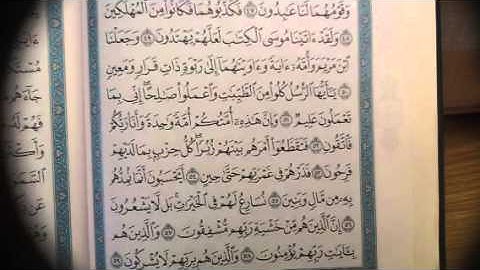 وَقَوْمُهُمَا لَنَا عَٰبِدُونَ ٤٧ فَكَذَّبُوهُمَا فَكَانُوا۟ مِنَ ٱلْمُهْلَكِينَ
٤٨ وَلَقَدْ ءَاتَيْنَا مُوسَى ٱلْكِتَٰبَ لَعَلَّهُمْ يَهْتَدُونَ ٤٩ وَجَعَلْنَا
ٱبْنَ مَرْيَمَ وَأُمَّهُۥٓ ءَايَةً وَءَاوَيْنَٰهُمَآ إِلَىٰ رَبْوَةٍ ذَاتِ قَرَارٍ وَمَعِينٍ
٥٠ يَٰٓأَيُّهَا ٱلرُّسُلُ كُلُوا۟ مِنَ ٱلطَّيِّبَٰتِ وَٱعْمَلُوا۟ صَٰلِحًا إِنِّى بِمَا
تَعْمَلُونَ عَلِيمٌ ٥١ وَإِنَّ هَٰذِهِۦٓ أُمَّتُكُمْ أُمَّةً وَٰحِدَةً وَأَنَا۠ رَبُّكُمْ
فَٱتَّقُونِ ٥٢ فَتَقَطَّعُوٓا۟ أَمْرَهُم بَيْنَهُمْ زُبُرًا كُلُّ حِزْبٍۭ بِمَا لَدَيْهِمْ
فَرِحُونَ ٥٣ فَذَرْهُمْ فِى غَمْرَتِهِمْ حَتَّىٰ حِينٍ ٥٤ أَيَحْسَبُونَ أَنَّمَا نُمِدُّهُم
بِهِۦ مِن مَّالٍ وَبَنِينَ ٥٥ نُسَارِعُ لَهُمْ فِى ٱلْخَيْرَٰتِ بَل لَّا يَشْعُرُونَ
٥٦ إِنَّ ٱلَّذِينَ هُم مِّنْ خَشْيَةِ رَبِّهِم مُّشْفِقُونَ ٥٧ وَٱلَّذِينَ هُم
بِـَٔايَٰتِ رَبِّهِمْ يُؤْمِنُونَ ٥٨ وَٱلَّذِينَ هُم بِرَبِّهِمْ لَا يُشْرِكُونَ ٥٩